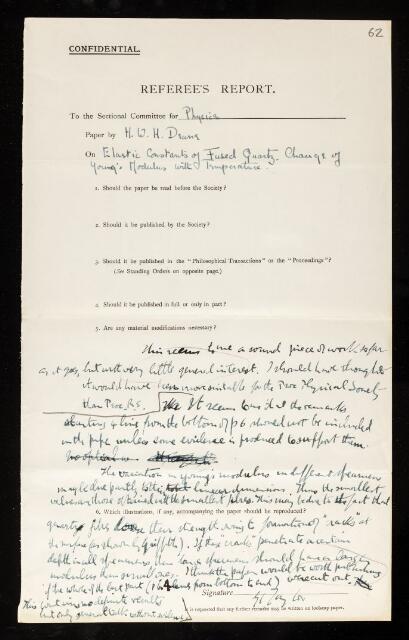 62
CONFIDENTIAL.
REFEREE'S REPORT.
To the Sectional Committee for Physics
Paper by H. W. H. Drane
On Elastic Constants of Fused Quartz. Change of
Young's Modulus with Temperature.
1. Should the paper be read before the Society?
2. Should it be published by the Society?
3. Should it be published in the "Philosophical Transactions" or the "Proceedings"?
(See Standing Orders on opposite page.)
4. Should it be published in full or only in part?
5. Are any material modifications necessary?
This seems to me a sound piece of work so far
as it goes, but with very little general interest. I should have thought
it would have been more suitable for the Proc Physical Society
than Proc. R.S. It seems to me that the remarks
starting a line from the bottom of p 6 should not be included
in the paper unless some evidence is produced to support them.
The variation in Young's modulus in different specimens
may be due partly to linear dimensions. Thus the smallest
values are those obtained with the smallest fibres. This may be due to the fact that
6. Which illustrations, if any, accompanying the paper should be reproduced?
quartz fibres their strength owing to formation of "cracks" at
the surface (as shown by Griffith). If these "cracks" penetrate a certain
depth in all specimens, then large specimens should have a larger
modulus than small ones. I think the paper would be worth publishing
if the whole of the last part (p 6 lines from bottom to end) were cut out.
Signature G I Taylor
This part gives no definite results
but only general talk without evidence
is requested that any further remarks may be written on foolscap paper.